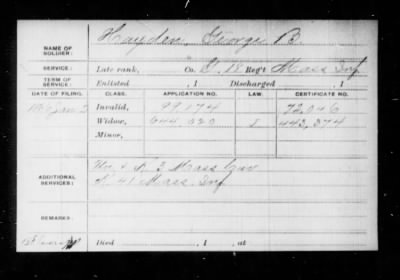 NAME OF SOLDIER: Hayden, George B.
SERVICE: Late rank, Co. 18 Reg't Mass Inf
TERM OF SERVICE: Enlisted , 1 Discharged , 1
DATE OF FILING. CLASS. APPLICATION NO. LAW. CERTIFICATE NO.
Jan 2 Invalid, 99174 72,046
Widow, 644 020 443,374
Minor,
ADDITIONAL SERVICES: 3 Mass Cav
K 41 Mass Inf
REMARKS:
Died , 1 , at